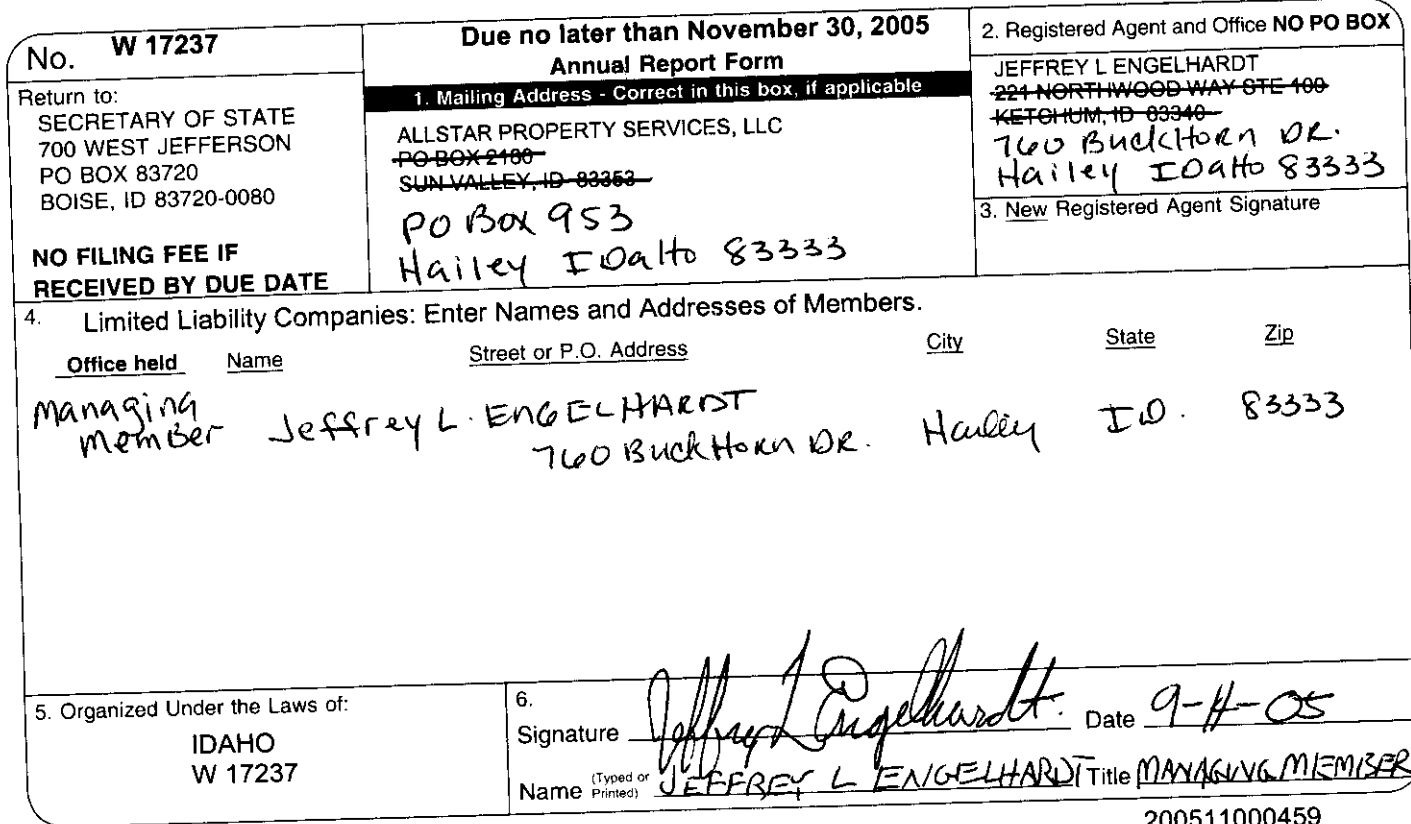 No. W 17237
Return to:
SECRETARY OF STATE
700 WEST JEFFERSON
PO BOX 83720
BOISE, ID 83720-0080
NO FILING FEE IF
RECEIVED BY DUE DATE
Due no later than November 30, 2005
Annual Report Form
1. Mailing Address - Correct in this box, if applicable
ALLSTAR PROPERTY SERVICES, LLC
PO BOX 2180
SUN VALLEY, ID 83353
PO Box 953
Hailey IDaHo 83333
2. Registered Agent and Office NO PO BOX
JEFFREY L ENGELHARDT
221 NORTHWOOD WAY STE 100
KETCHUM, ID 83340
760 BuckHorn DR.
Hailey IDaHo 83333
3. New Registered Agent Signature
4. Limited Liability Companies: Enter Names and Addresses of Members.
Office held Name Street or P.O. Address City State Zip
Managing
Member Jeffrey L. ENGELHARDT
760 BuckHorn DR. Hailey ID. 83333
5. Organized Under the Laws of:
IDAHO
W 17237
6.
Signature Jeffrey L Engelhardt. Date 9-    -05
Name (Typed or Printed) JEFFREY L ENGELHARDT Title MANAGING MEMBER
200511000459